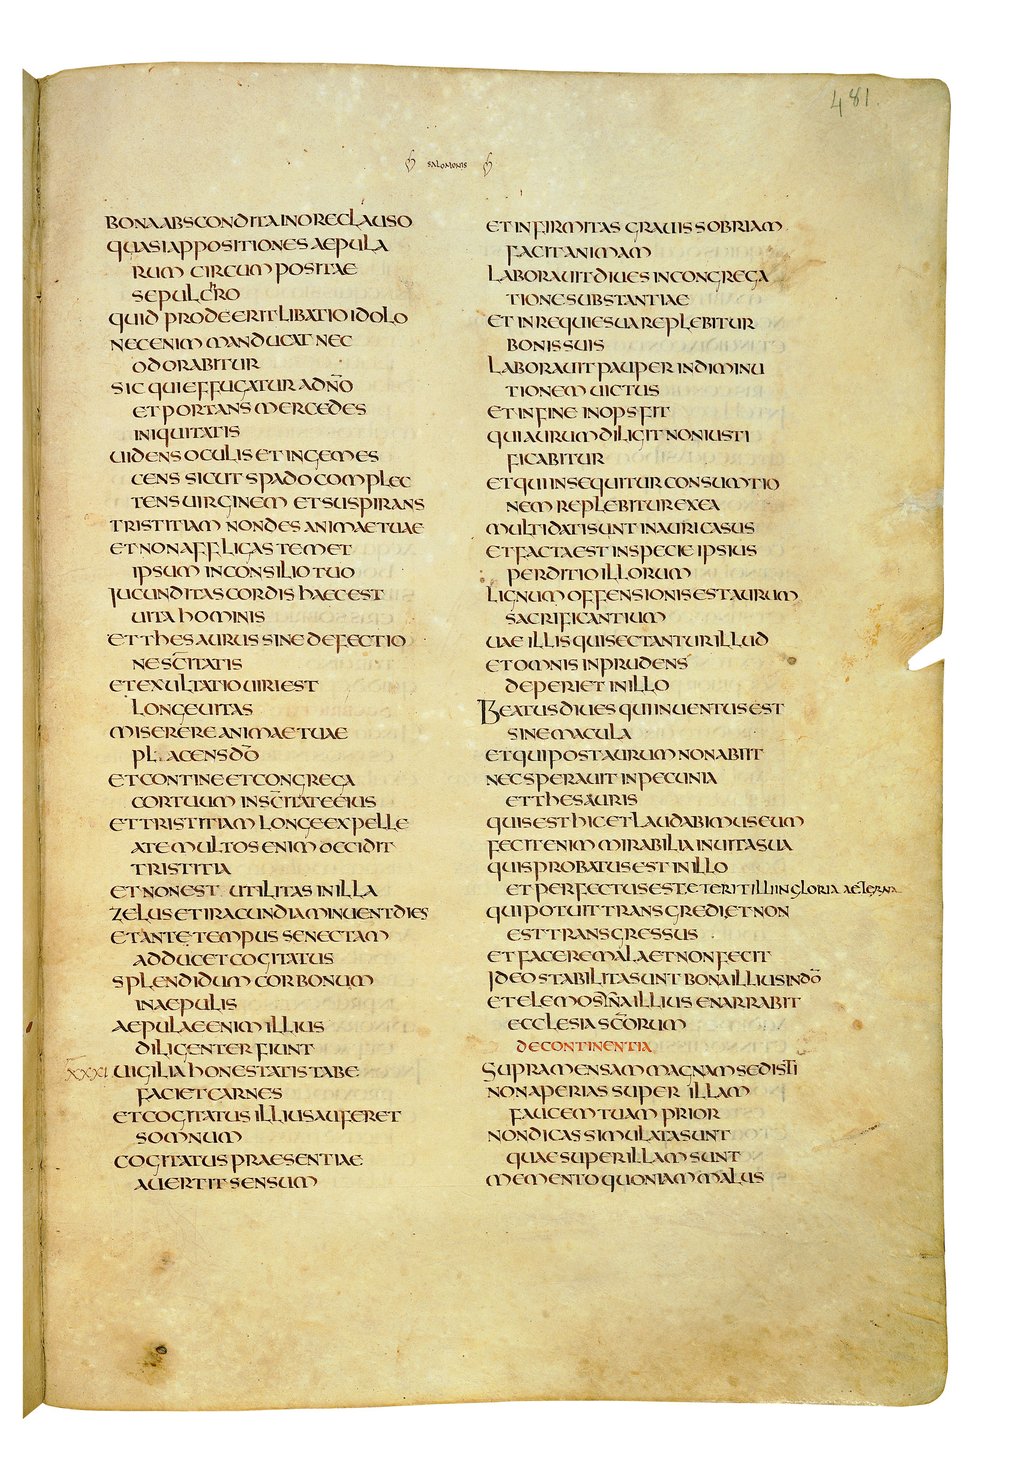 481.
SALOMONIS
BONA ABSCONDITA IN ORE CLAUSO
QUASI APPOSITIONES AEPULA
RUM CIRCUM POSITAE
SEPULCHRO
QUID PRODEERIT LIBATIO IDOLO
NEC ENIM MANDUCAT NEC
ODORABITUR
SIC QUI EFFUGATUR A DN̅O
ET PORTANS MERCEDES
INIQUITATIS
UIDENS OCULIS ET INGEMES
CENS SICUT SPADO COMPLEC
TENS UIRGINEM ET SUSPIRANS
TRISTITIAM NON DES ANIMAE TUAE
ET NON AFFLIGAS TEMET
IPSUM IN CONSILIO TUO
IUCUNDITAS CORDIS HAEC EST
UITA HOMINIS
ET THESAURUS SINE DEFECTIO
NE SC̅ITATIS
ET EXULTATIO UIRI EST
LONGEUITAS
MISERERE ANIMAE TUAE
PLACENS DO̅
ET CONTINE ET CONGREGA
COR TUUM IN SC̅ITATE EIUS
ET TRISTITIAM LONGE EXPELLE
A TE MULTOS ENIM OCCIDIT
TRISTITIA
ET NON EST UTILITAS IN ILLA
ZELUS ET IRACUNDIA MINUENT DIES
ET ANTE TEMPUS SENECTAM
ADDUCET COGITATUS
SPLENDIDUM COR BONUM
IN AEPULIS
AEPULAE ENIM ILLIUS
DILIGENTER FIUNT
XXXI UIGILIA HONESTATIS TABE
FACIET CARNES
ET COGITATUS ILLIUS AUFERET
SOMNUM
COGITATUS PRAESENTIAE
AUERTIT SENSUM
ET INFIRMITAS GRAUIS SOBRIAM
FACIT ANIMAM
LABORAUIT DIUES IN CONGREGA
TIONE SUBSTANTIAE
ET IN REQUIE SUA REPLEBITUR
BONIS SUIS
LABORAUIT PAUPER IN DIMINU
TIONEM UICTUS
ET IN FINE INOPS FIT
QUI AURUM DILIGIT NON IUSTI
FICABITUR
ET QUI INSEQUITUR CONSUMTIO
NEM REPLEBITUR EX EA
MULTI DATI SUNT IN AURI CASUS
ET FACTA EST IN SPECIE IPSIUS
PERDITIO ILLORUM
LIGNUM OFFENSIONIS EST AURUM
SACRIFICANTIUM
UAE ILLIS QUI SECTANTUR ILLUD
ET OMNIS INPRUDENS
DEPERIET IN ILLO
BEATUS DIUES QUI INUENTUS EST
SINE MACULA
ET QUI POST AURUM NON ABIIT
NEC SPERAUIT IN PECUNIA
ET THESAURIS
QUIS EST HIC ET LAUDABIMUS EUM
FECIT ENIM MIRABILIA IN UITA SUA
QUIS PROBATUS EST IN ILLO
ET PERFECTUS EST ET ERIT ILLI IN GLORIA AETERNA
QUI POTUIT TRANSGREDI ET NON
EST TRANSGRESSUS
ET FACERE MALA ET NON FECIT
IDEO STABILITA SUNT BONA ILLIUS IN DO̅
ET ELEMOSINA ILLIUS ENARRABIT
ECCLESIA SC̅ORUM
DE CONTINENTIA
SUPRA MENSAM MAGNAM SEDISTI
NON APERIAS SUPER ILLAM
FAUCEM TUAM PRIOR
NON DICAS SI MULTA SUNT
QUAE SUPER ILLAM SUNT
MEMENTO QUONIAM MALUS